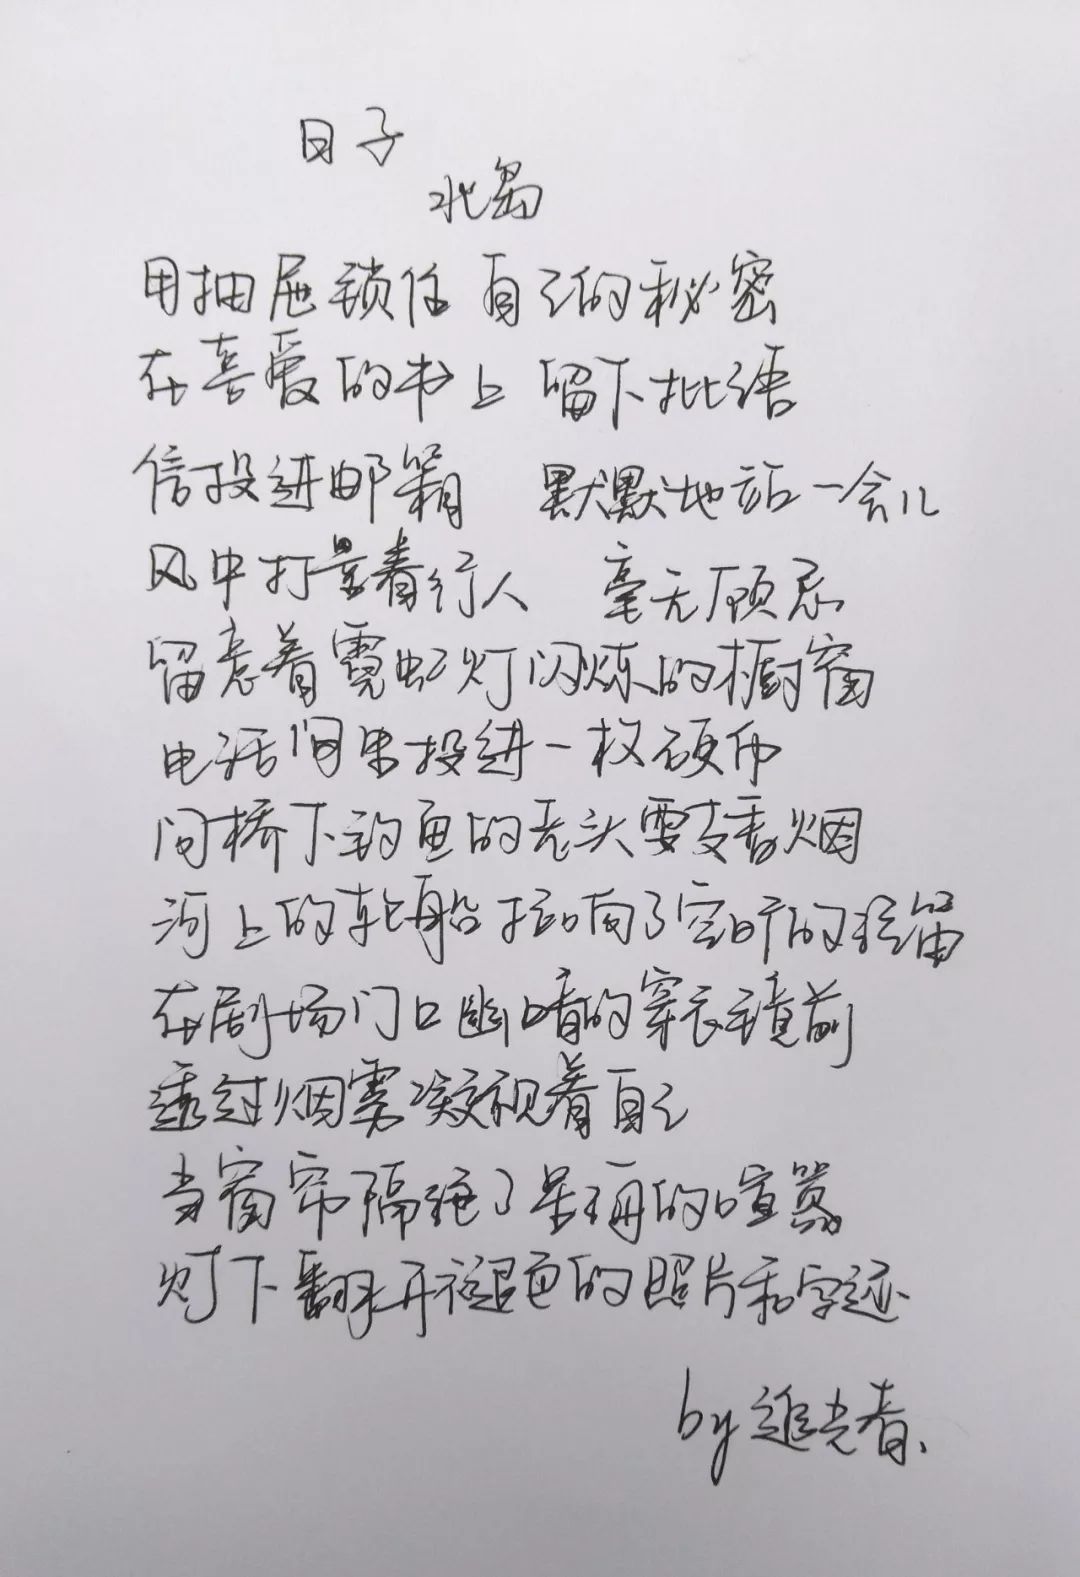 日子
北岛
用抽屉锁住自己的秘密
在喜爱的书上留下批语
信投进邮箱 默默地站一会儿
风中打量着行人 毫无顾忌
留意着霓虹灯闪烁的橱窗
电话间里投进一枚硬币
问桥下钓鱼的老头要支香烟
河上的轮船拉响了空旷的汽笛
在剧场门口幽暗的穿衣镜前
透过烟雾凝视着自己
当窗帘隔绝了星海的喧嚣
灯下翻开褪色的照片和字迹
by追光者